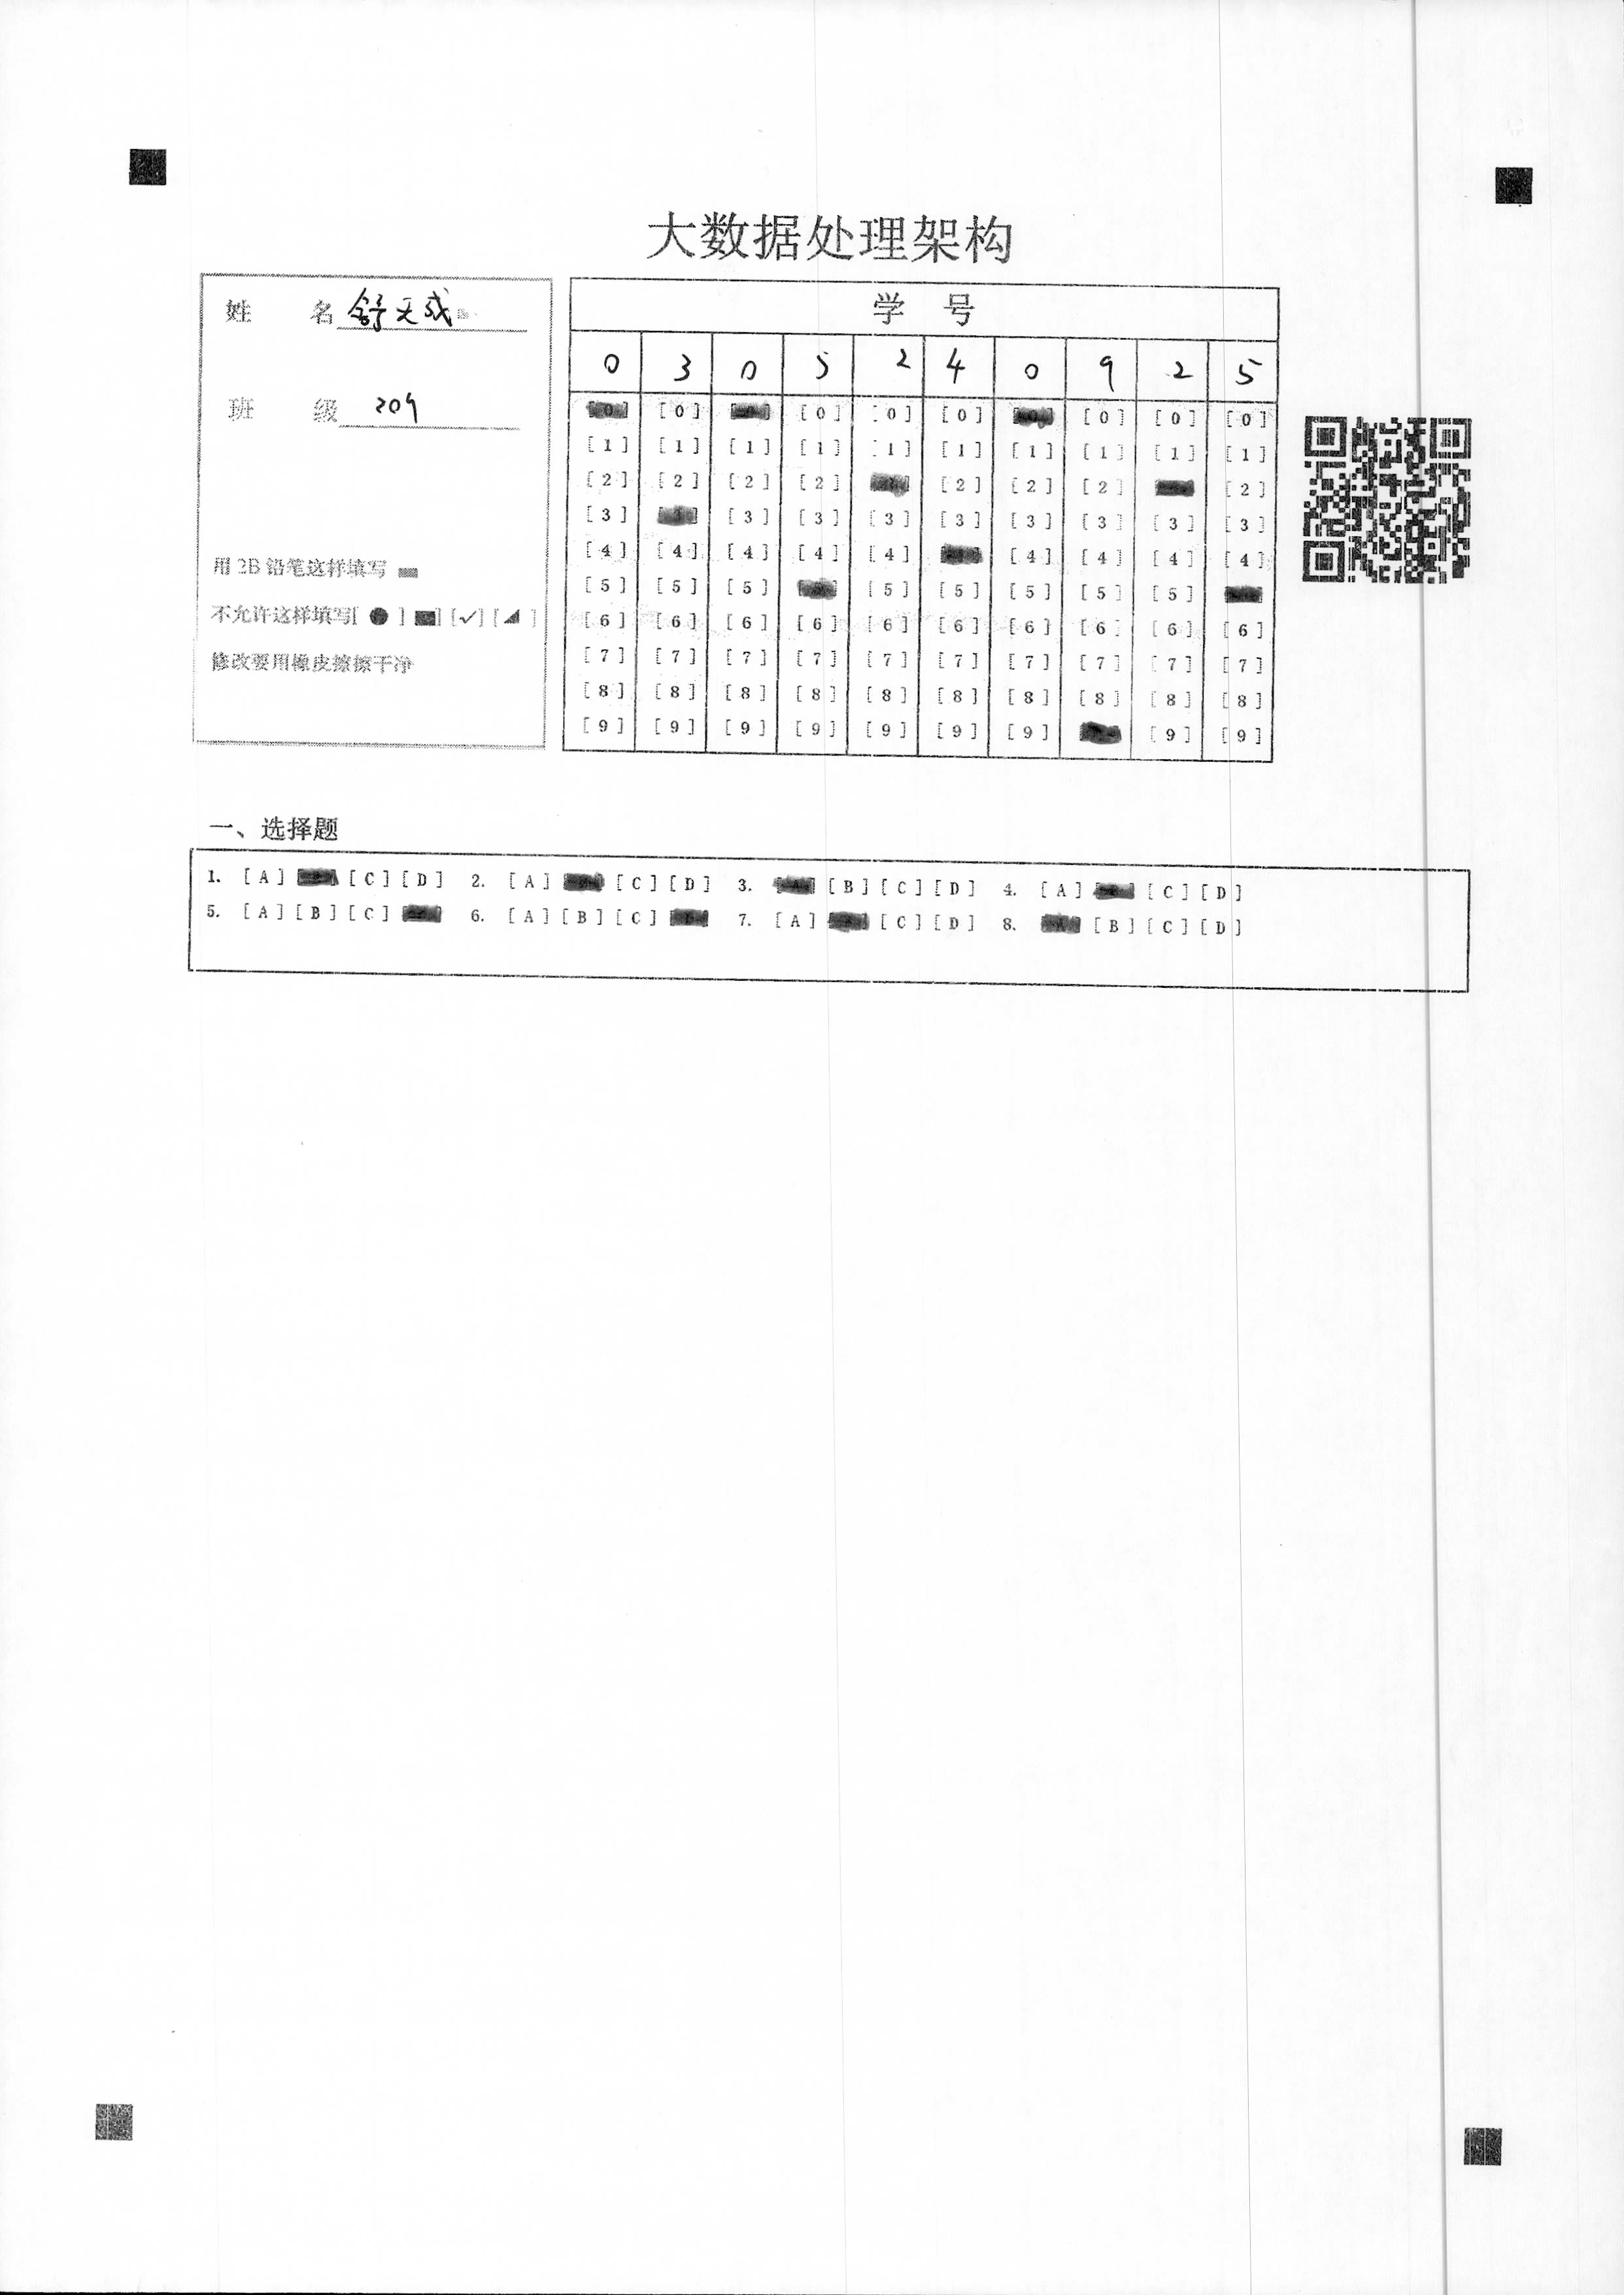 大数据处理架构
姓 名 舒天成
班 级 209
用 2B 铅笔这样填写
不允许这样填写[ ● ] [■] [✓] [◢]
修改要用橡皮擦擦干净
学 号
0 3 0 5 2 4 0 9 2 5
[0] [0] [0] [0] [0] [0] [0] [0] [0] [0]
[1] [1] [1] [1] [1] [1] [1] [1] [1] [1]
[2] [2] [2] [2] [2] [2] [2] [2]
[3] [3] [3] [3] [3] [3] [3] [3] [3] [3]
[4] [4] [4] [4] [4] [4] [4] [4] [4]
[5] [5] [5] [5] [5] [5] [5] [5]
[6] [6] [6] [6] [6] [6] [6] [6] [6] [6]
[7] [7] [7] [7] [7] [7] [7] [7] [7] [7]
[8] [8] [8] [8] [8] [8] [8] [8] [8] [8]
[9] [9] [9] [9] [9] [9] [9] [9] [9]
一、选择题
1. [A] [C] [D] 2. [A] [C] [D] 3. [B] [C] [D] 4. [A] [C] [D]
5. [A] [B] [C] 6. [A] [B] [C] 7. [A] [C] [D] 8. [B] [C] [D]